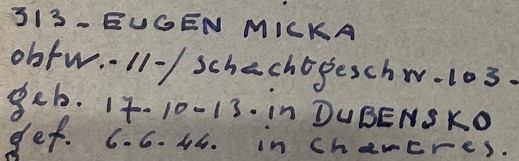 313 - EUGEN MICKA
obfw. - 11-/ schachtgeschw. 103 -
geb. 17-10-13. in DUBENSKO
gef. 6.6.44. in chartres.